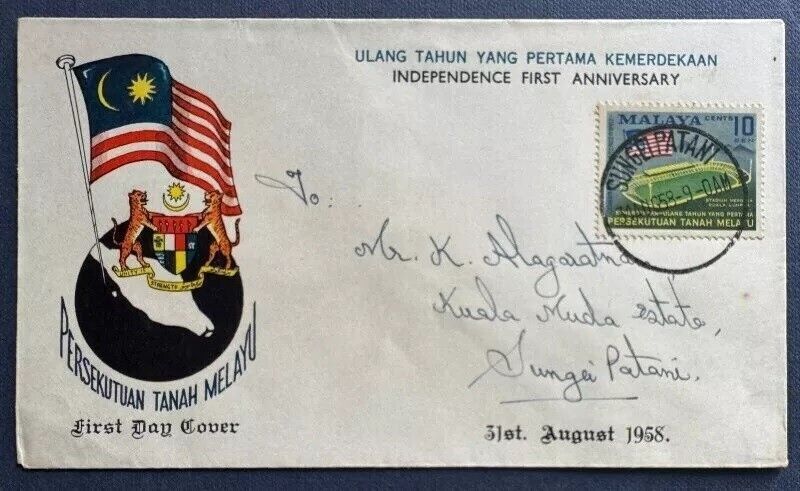 ULANG TAHUN YANG PERTAMA KEMERDEKAAN
INDEPENDENCE FIRST ANNIVERSARY
MALAYA CENTS 10
SEN
SUNGEI PATANI
9-0AM
STADIUM MERDEKA
KUALA LUMPUR
ULANG TAHUN YANG PERTAMA
PERSEKUTUAN TANAH MELAYU
To:
Mr. K. Alagaratnam
Kuala Muda Estate,
Sungei Patani.
UNITY IS
STRENGTH
PERSEKUTUAN TANAH MELAYU
First Day Cover
31st. August 1958.